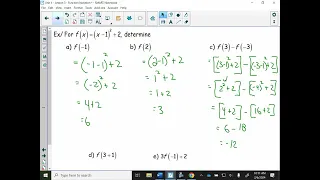 Ex/ For f(x) = (x - 1)² + 2, determine
a) f(-1)
= (-1-1)² + 2
= (-2)² + 2
= 4 + 2
= 6
b) f(2)
= (2-1)² + 2
= 1² + 2
= 1 + 2
= 3
c) f(3) - f(-3)
= [(3-1)² + 2] - [(-3-1)² + 2]
= [2² + 2] - [(-4)² + 2]
= [4+2] - [16+2]
= 6 - 18
= -12
d) f(3+1)
e) 3f(-1) + 2